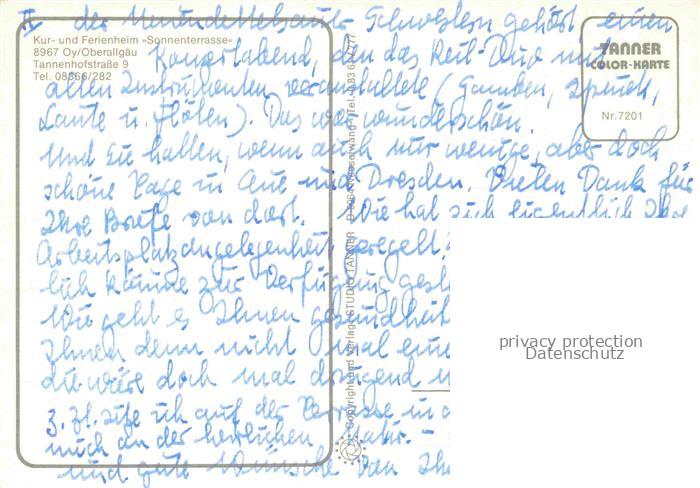 II der Neuendettelsauer Schwestern gehört einen
Kur- und Ferienheim »Sonnenterrasse«
8967 Oy/Oberallgäu
Tannenhofstraße 9
Tel. 08366/282
Konzertabend, den das Reil-Duo mit
alten Instrumenten veranstaltete (Gamben, Spinett,
Laute u. Flöten). Das war wunderschön.
Und Sie hatten, wenn auch nur wenige, aber doch
schöne Tage in Aue und Dresden. Vielen Dank für
Ihre Briefe von dort. Wie hat sich eigentlich Ihre
Arbeitsplatzangelegenheit geregelt
lich Kämme zur Verfügung
Wie geht es Ihnen gesundheit
Ihnen denn nicht mal eine
die wäre doch mal dringend
z. Zt. sitze ich auf der Terrasse in
mich an der herrlichen Natur. -
und gute Wünsche von
TANNER
COLOR-KARTE
Nr. 7201
Copyright und Verlag: STUDIO TANNER
privacy protection
Datenschutz